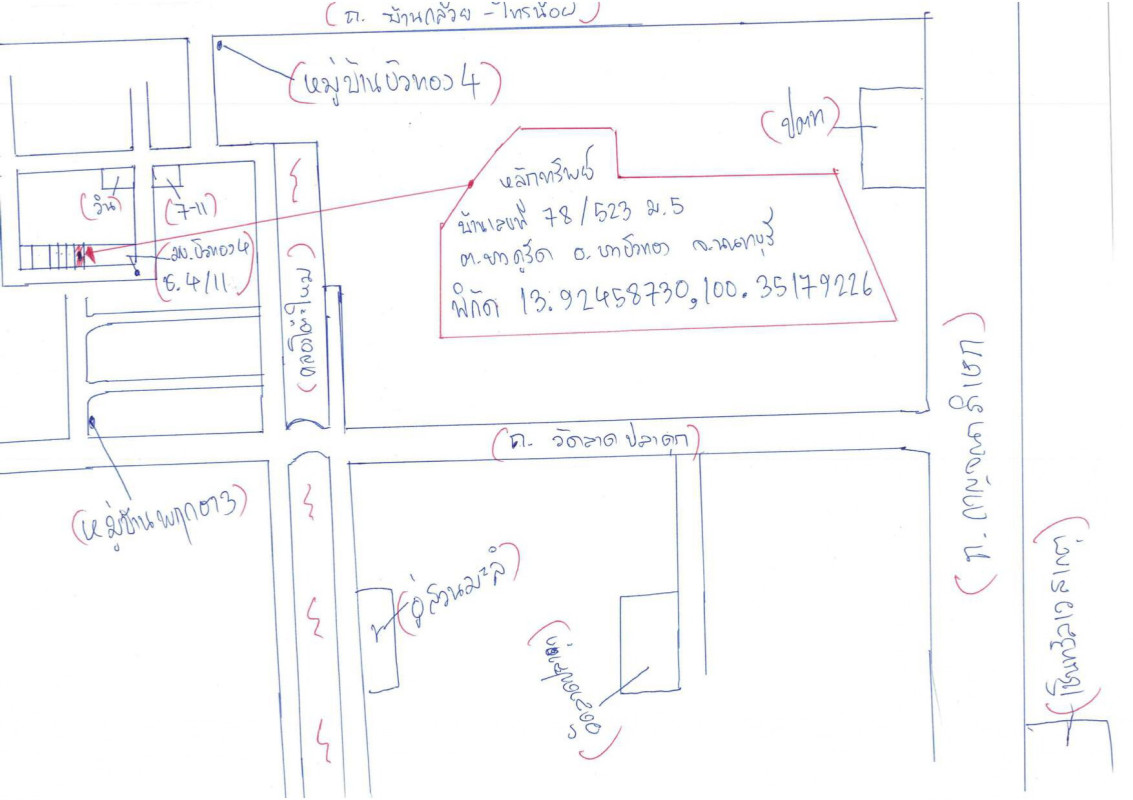 (ถ. บ้านกล้วย - ไทรน้อย)
(หมู่บ้านบัวทอง 4)
(ปตท)
หลักทรัพย์
บ้านเลขที่ 78/523 ม.5
ต.บางคูรัด อ.บางบัวทอง จ.นนทบุรี
พิกัด 13.92458730,100.35179226
(วิน)
(7-11)
(มบ.บัวทอง 4
ซ.4/11)
(คลองโต๊ะใหม่)
(ถ. วัดลาดปลาดุก)
(หมู่บ้านพฤกษา3)
(อู่สวนมะลิ)
(ถ. กาญจนาภิเษก)